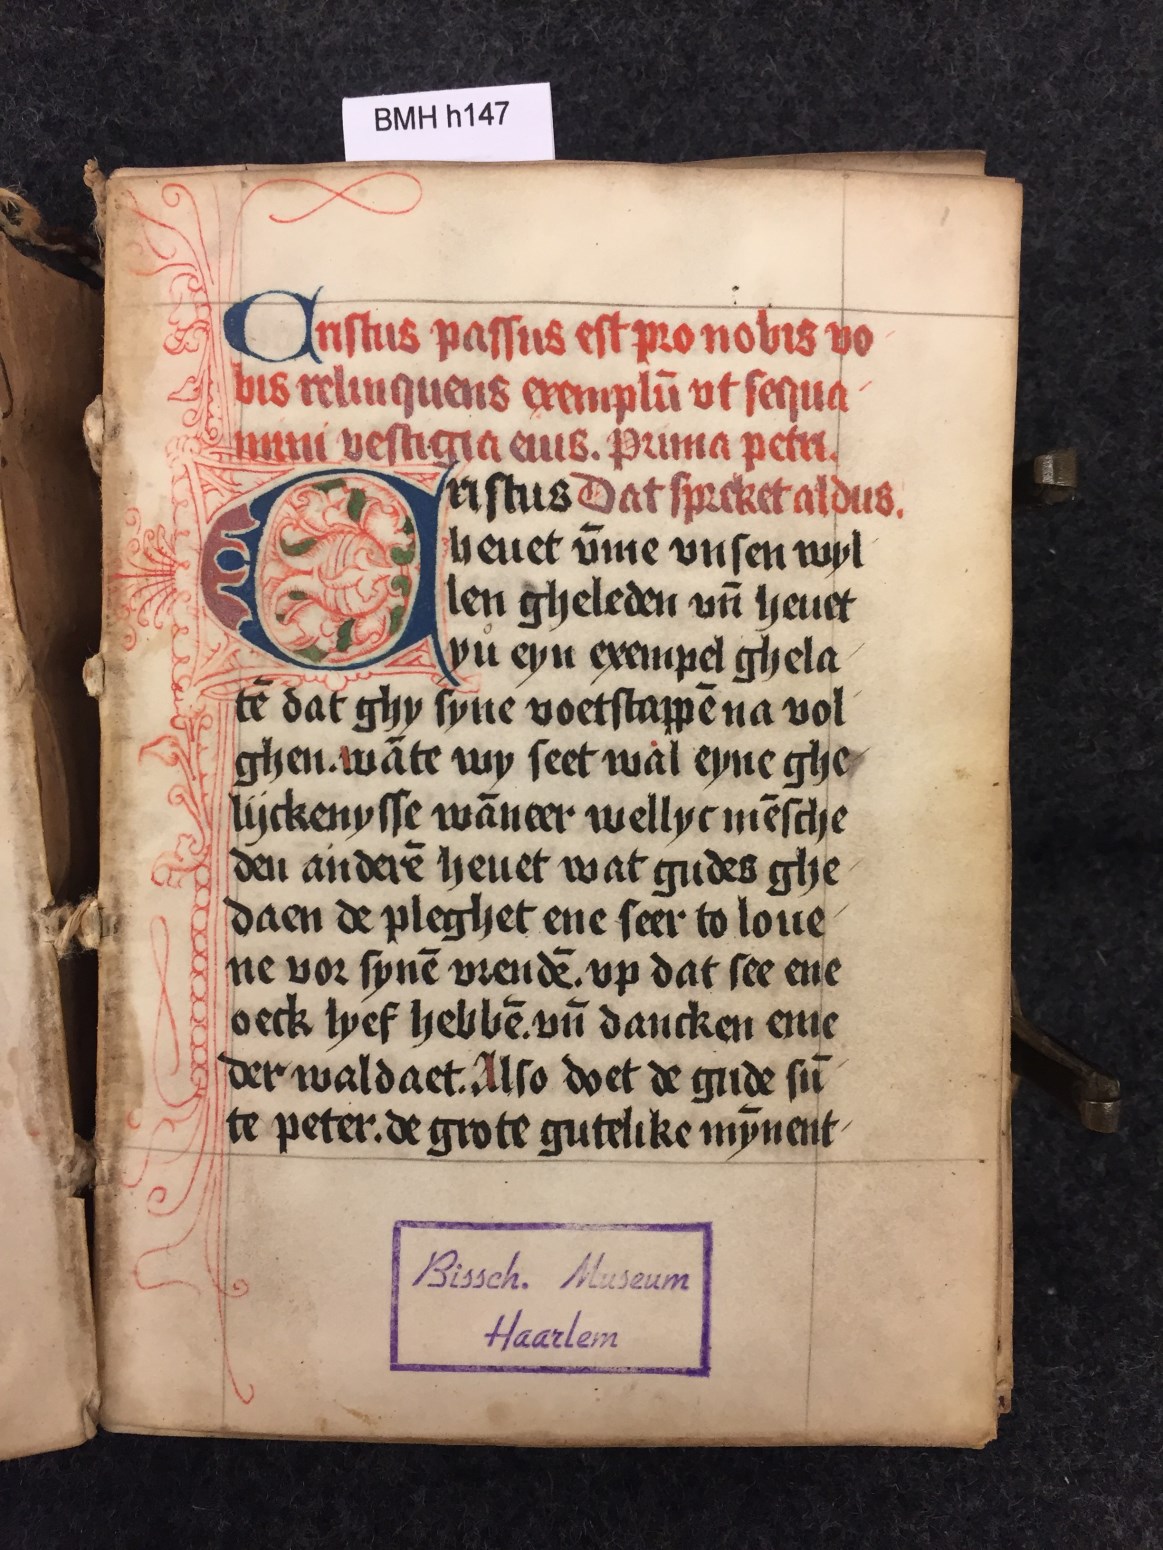 BMH h147
Cristus passus est pro nobis vo
bis relinquens exemplū vt sequa
mini vestigia eius. Prima petri.
Cristus Dat spreket aldus.
heuet v̄me vnsen wyl
len gheleden vn̄ heuet
yů eyn exempel ghela
tē dat ghy syne voetstappē na vol
ghen. wāte wy seet wal eyne ghe
lijckenysse wāneer wellyc mēsche
den anderē heuet wat gudes ghe
daen de pleghet ene seer to loue
ne vor synē vrendē. vp dat see ene
oeck lyef hebbē. vn̄ dancken eme
der waldaet. Also doet de gude sū
te peter. de grote gutelike mȳnent
Bissch. Museum
Haarlem